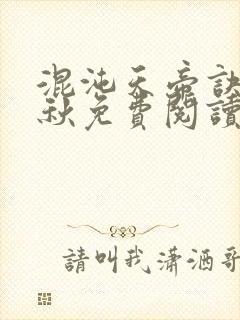 混沌天帝訣
秋免費閱讀
請叫我瀟洒哥